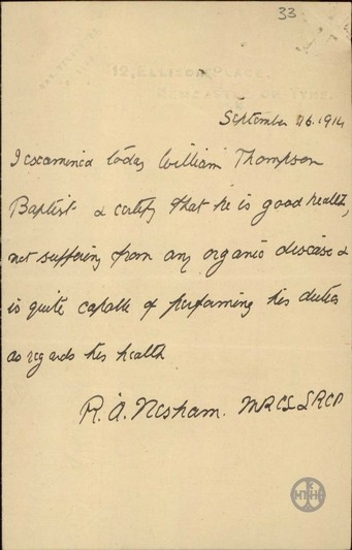 33
12, ELLISON PLACE,
NEWCASTLE ON TYNE.
September 26.1914
I examined today William Thompson
Baptist & certify that he is good health,
not suffering from any organic disease &
is quite capable of performing his duties
as regards his health
R. A. Nesham. MRCS LRCP